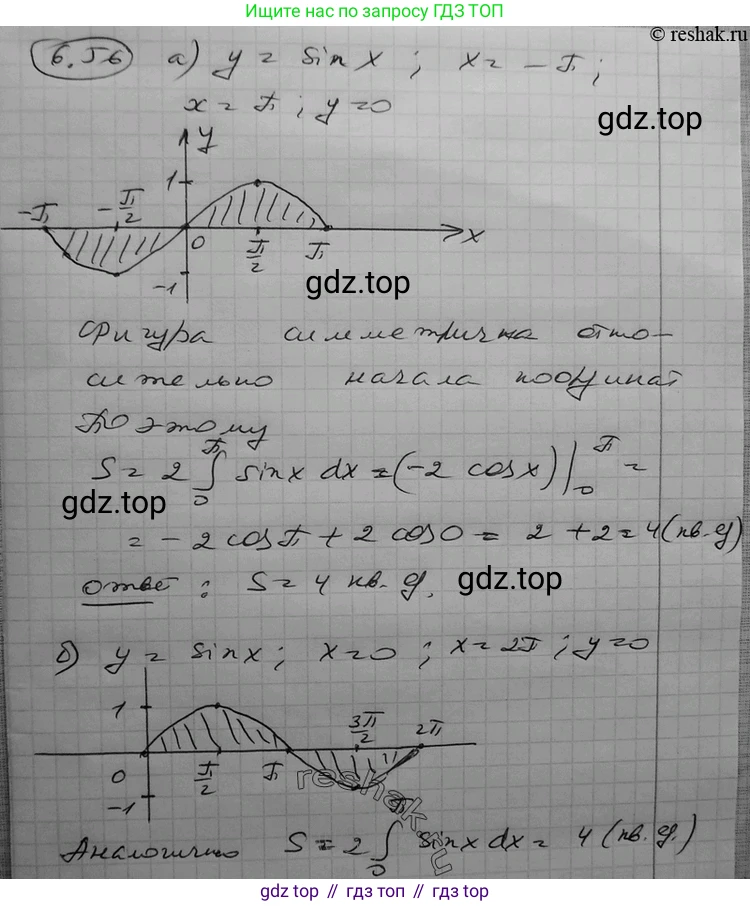 Больше решений по запросу ГДЗ ТОП
© reshak.ru
6.56 а) y = sin x ; x = -π ;
x = π ; y = 0
gdz.top
y
1
-π -π/2 0 π/2 π x
-1
gdz.top
Фигура симметрична отно-
сительно начала координат
Поэтому
S = 2 ∫₀^π sin x dx = (-2 cos x) |₀^π =
gdz.top
= - 2 cos π + 2 cos 0 = 2 + 2 = 4 (кв. ед)
Ответ : S = 4 кв. ед.
gdz.top
б) y = sin x ; x = 0 ; x = 2π ; y = 0
1
3π/2 2π
0 π/2 π
-1
reshak.ru
Аналогично S = 2 ∫₀^π sin x dx = 4 (кв. ед.)
gdz top // гдз топ // gdz.top